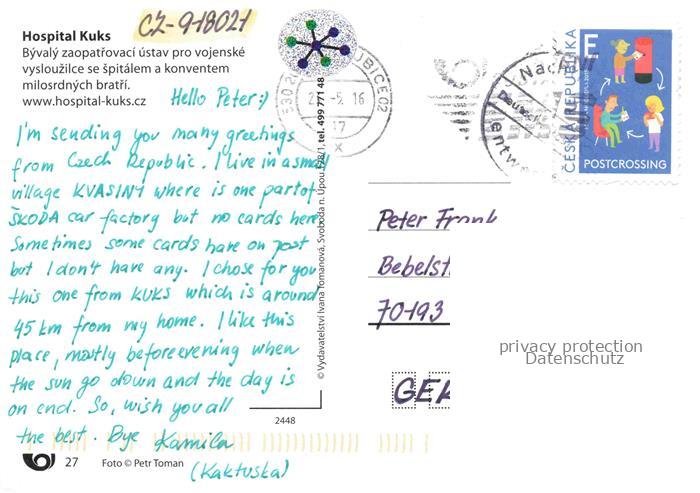 CZ-918021
Hospital Kuks
Bývalý zaopatřovací ústav pro vojenské
vysloužilce se špitálem a konventem
milosrdných bratří.
www.hospital-kuks.cz
Hello Peter :)
I'm sending you many greetings
from Czech Republic. I live in a small
village KVASINY where is one part of
ŠKODA car factory but no cards here.
Sometimes some cards have on post
but I don't have any. I chose for you
this one from KUKS which is around
45 km from my home. I like this
place, mostly before evening when
the sun go down and the day is
on end. So, wish you all
the best. Bye Kamila
(Kaktuska)
27 Foto © Petr Toman
© Vydavatelství Ivana Tomanová, Svoboda n. Úpou 278/1, tel. 499 771 48
2448
-5. 16
17
x
Deutsche
entwe
E
ČESKÁ REPUBLIKA
POSTCROSSING
Peter Frank
Bebelst
70193
GER
privacy protection
Datenschutz